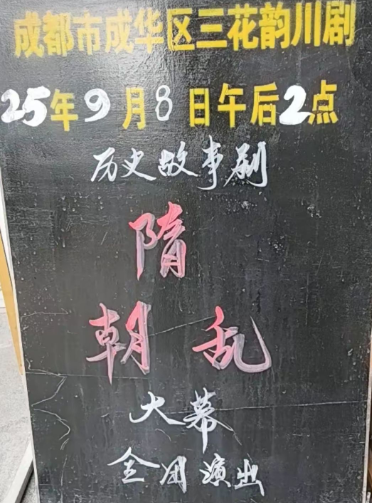 成都市成华区三花韵川剧
25年9月8日午后2点
历史故事剧
隋
朝乱
大幕
全团演出